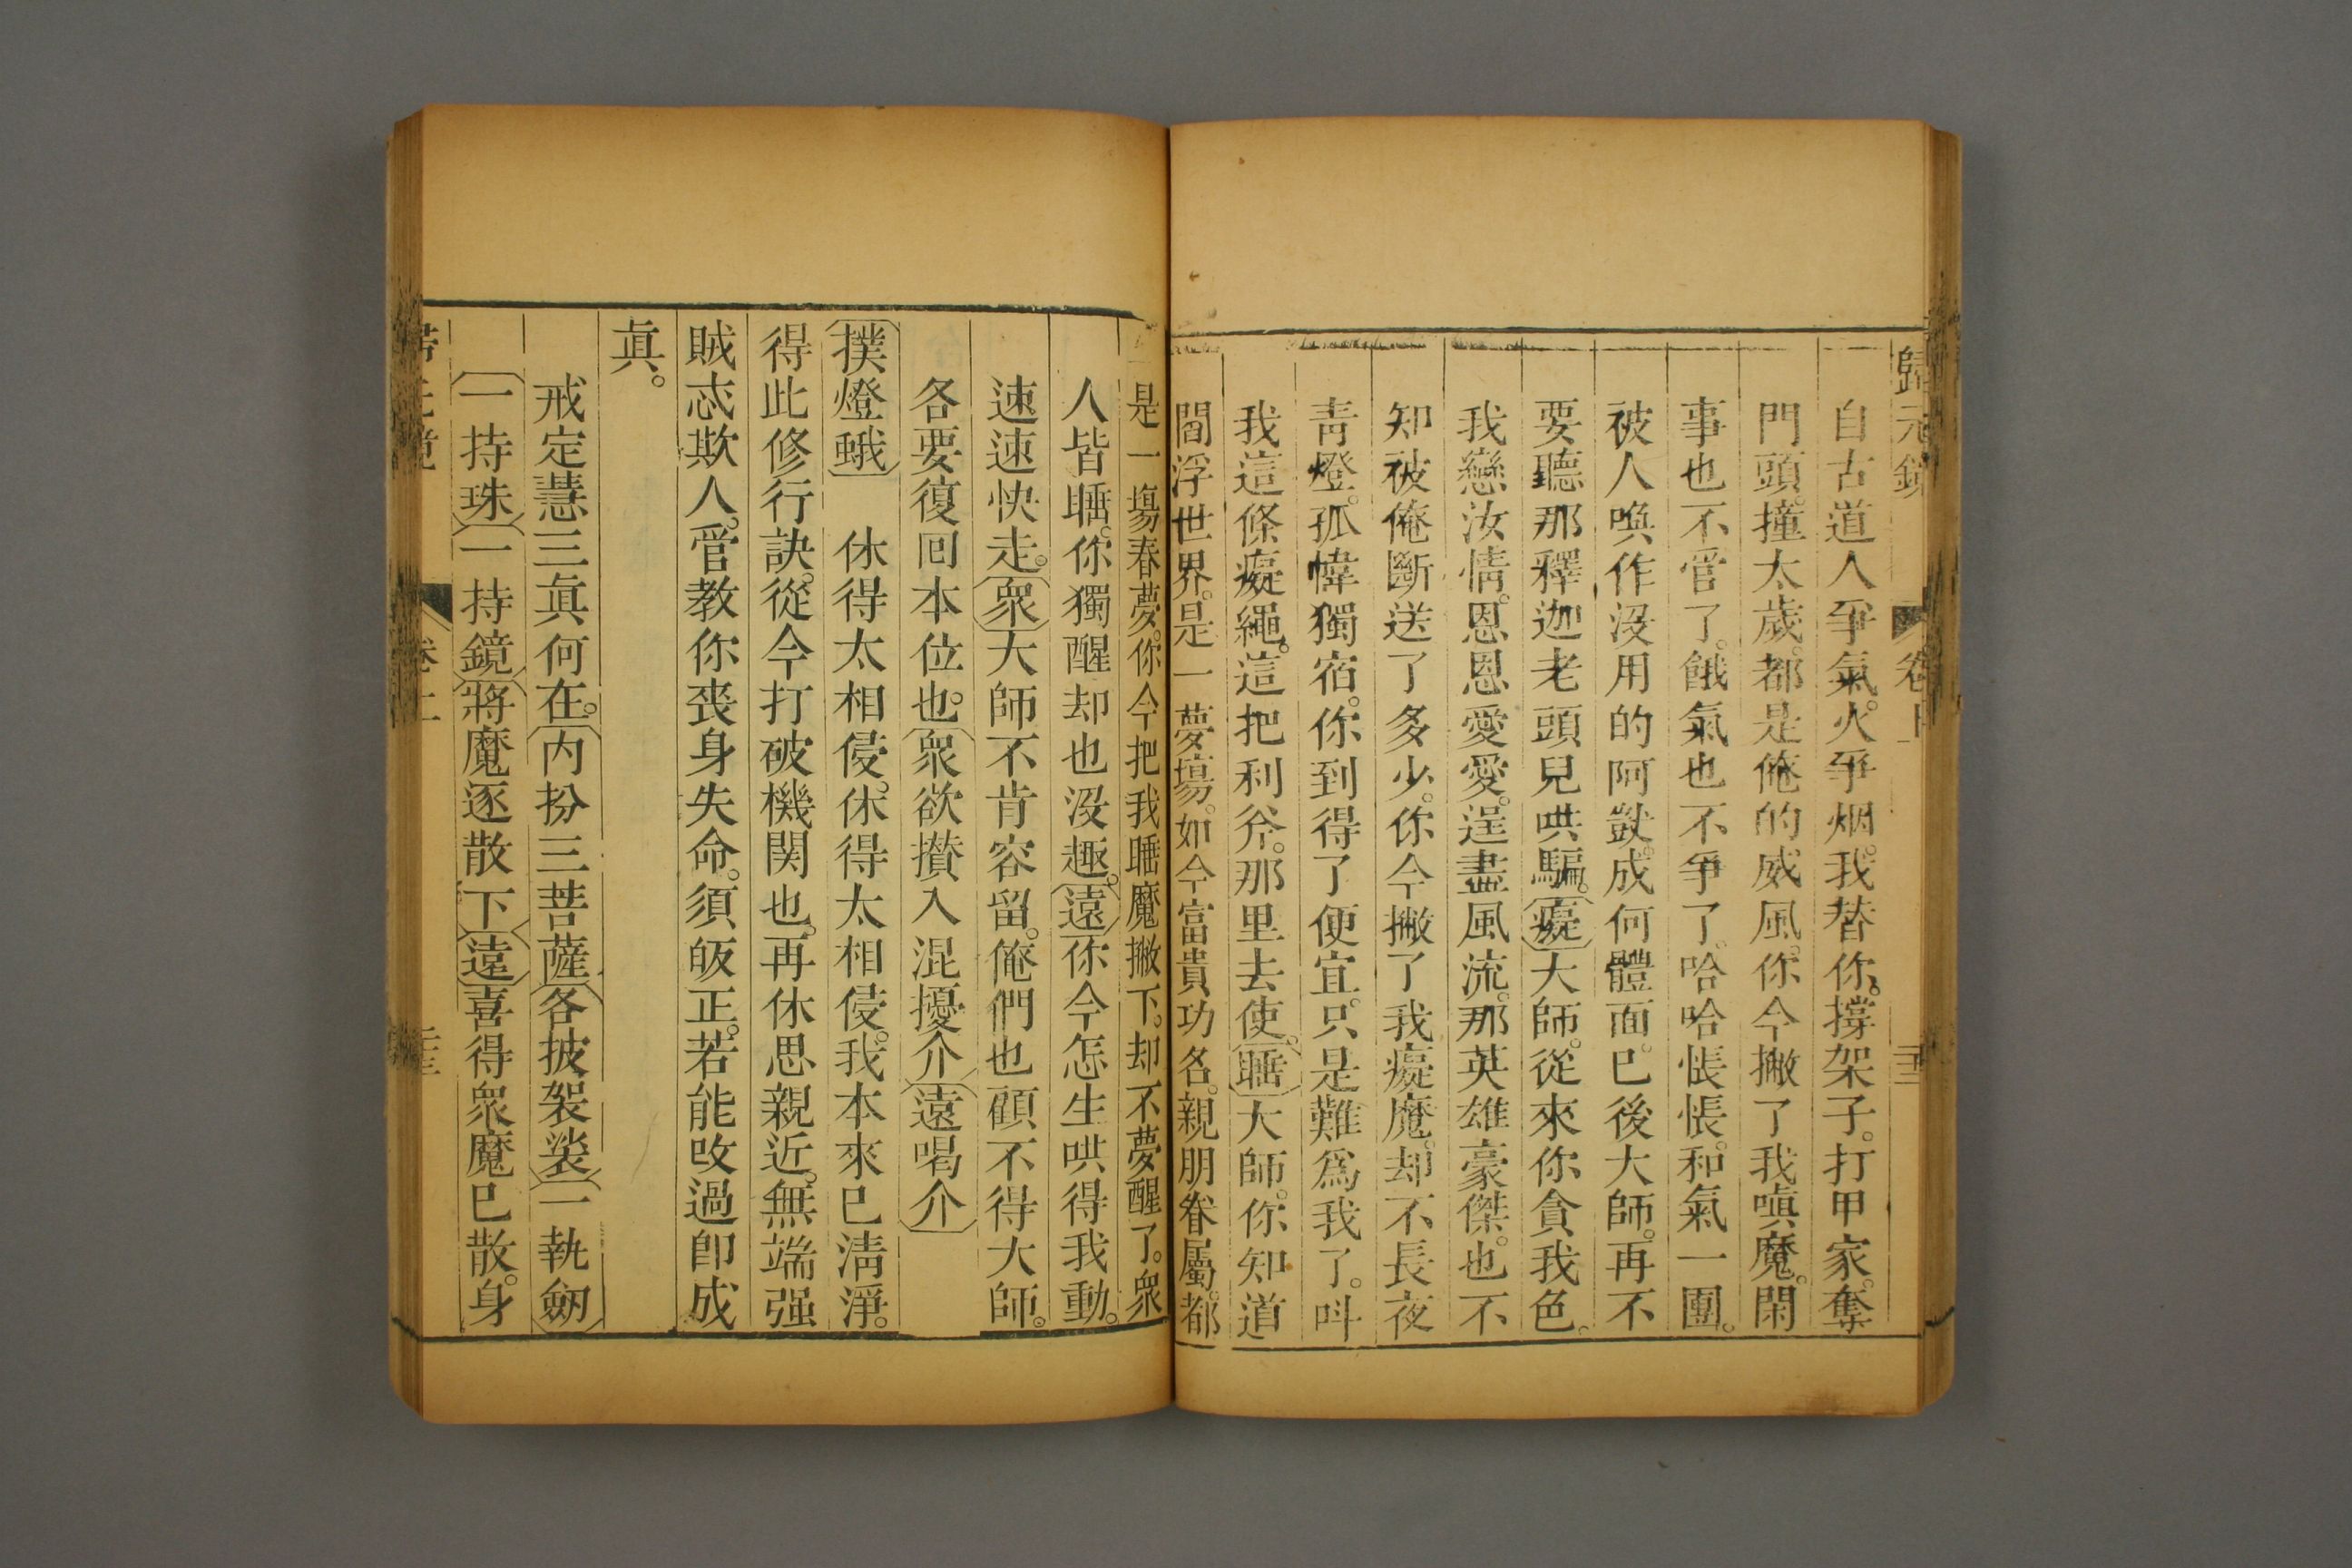 歸元鏡 卷上
自古道人爭氣。火爭烟。我替你。撐架子。打甲家。奪
門頭。撞太歲。都是俺的威風。你今撇了我嗔魔。閑
事也不管了。餓氣也不爭了。哈哈悵悵。和氣一團。
被人喚作沒用的阿獃。成何體面。已後大師。再不
要聽那釋迦老頭兒哄騙。癡大師。從來你貪我色。
我戀汝情。恩恩愛愛。逞盡風流。那英雄豪傑。也不
知被俺斷送了多少。你今撇了我癡魔。却不長夜
靑燈。孤幃獨宿。你到得了便宜。只是難爲我了。呌
我這條癡繩。這把利斧。那里去使。睡大師。你知道
閻浮世界。是一夢塲。如今富貴功名。親朋眷屬。都
是一塲春夢。你今把我睡魔撇下。却不夢醒了。衆
人皆睡。你獨醒却也沒趣。遠你今怎生哄得我動。
速速快走。衆大師不肯容留。俺們也顧不得大師。
各要復囘本位也。衆欲攢入混擾介遠喝介
撲燈蛾 休得太相侵。休得太相侵。我本來已淸淨。
得此修行訣。從今打破機関也。再休思親近。無端强
賊忒欺人。管教你喪身失命。須皈正。若能改過卽成
眞。
戒定慧三眞何在。内扮三菩薩各披袈裟一執劒
一持珠一持鏡將魔逐散下遠喜得衆魔已散。身